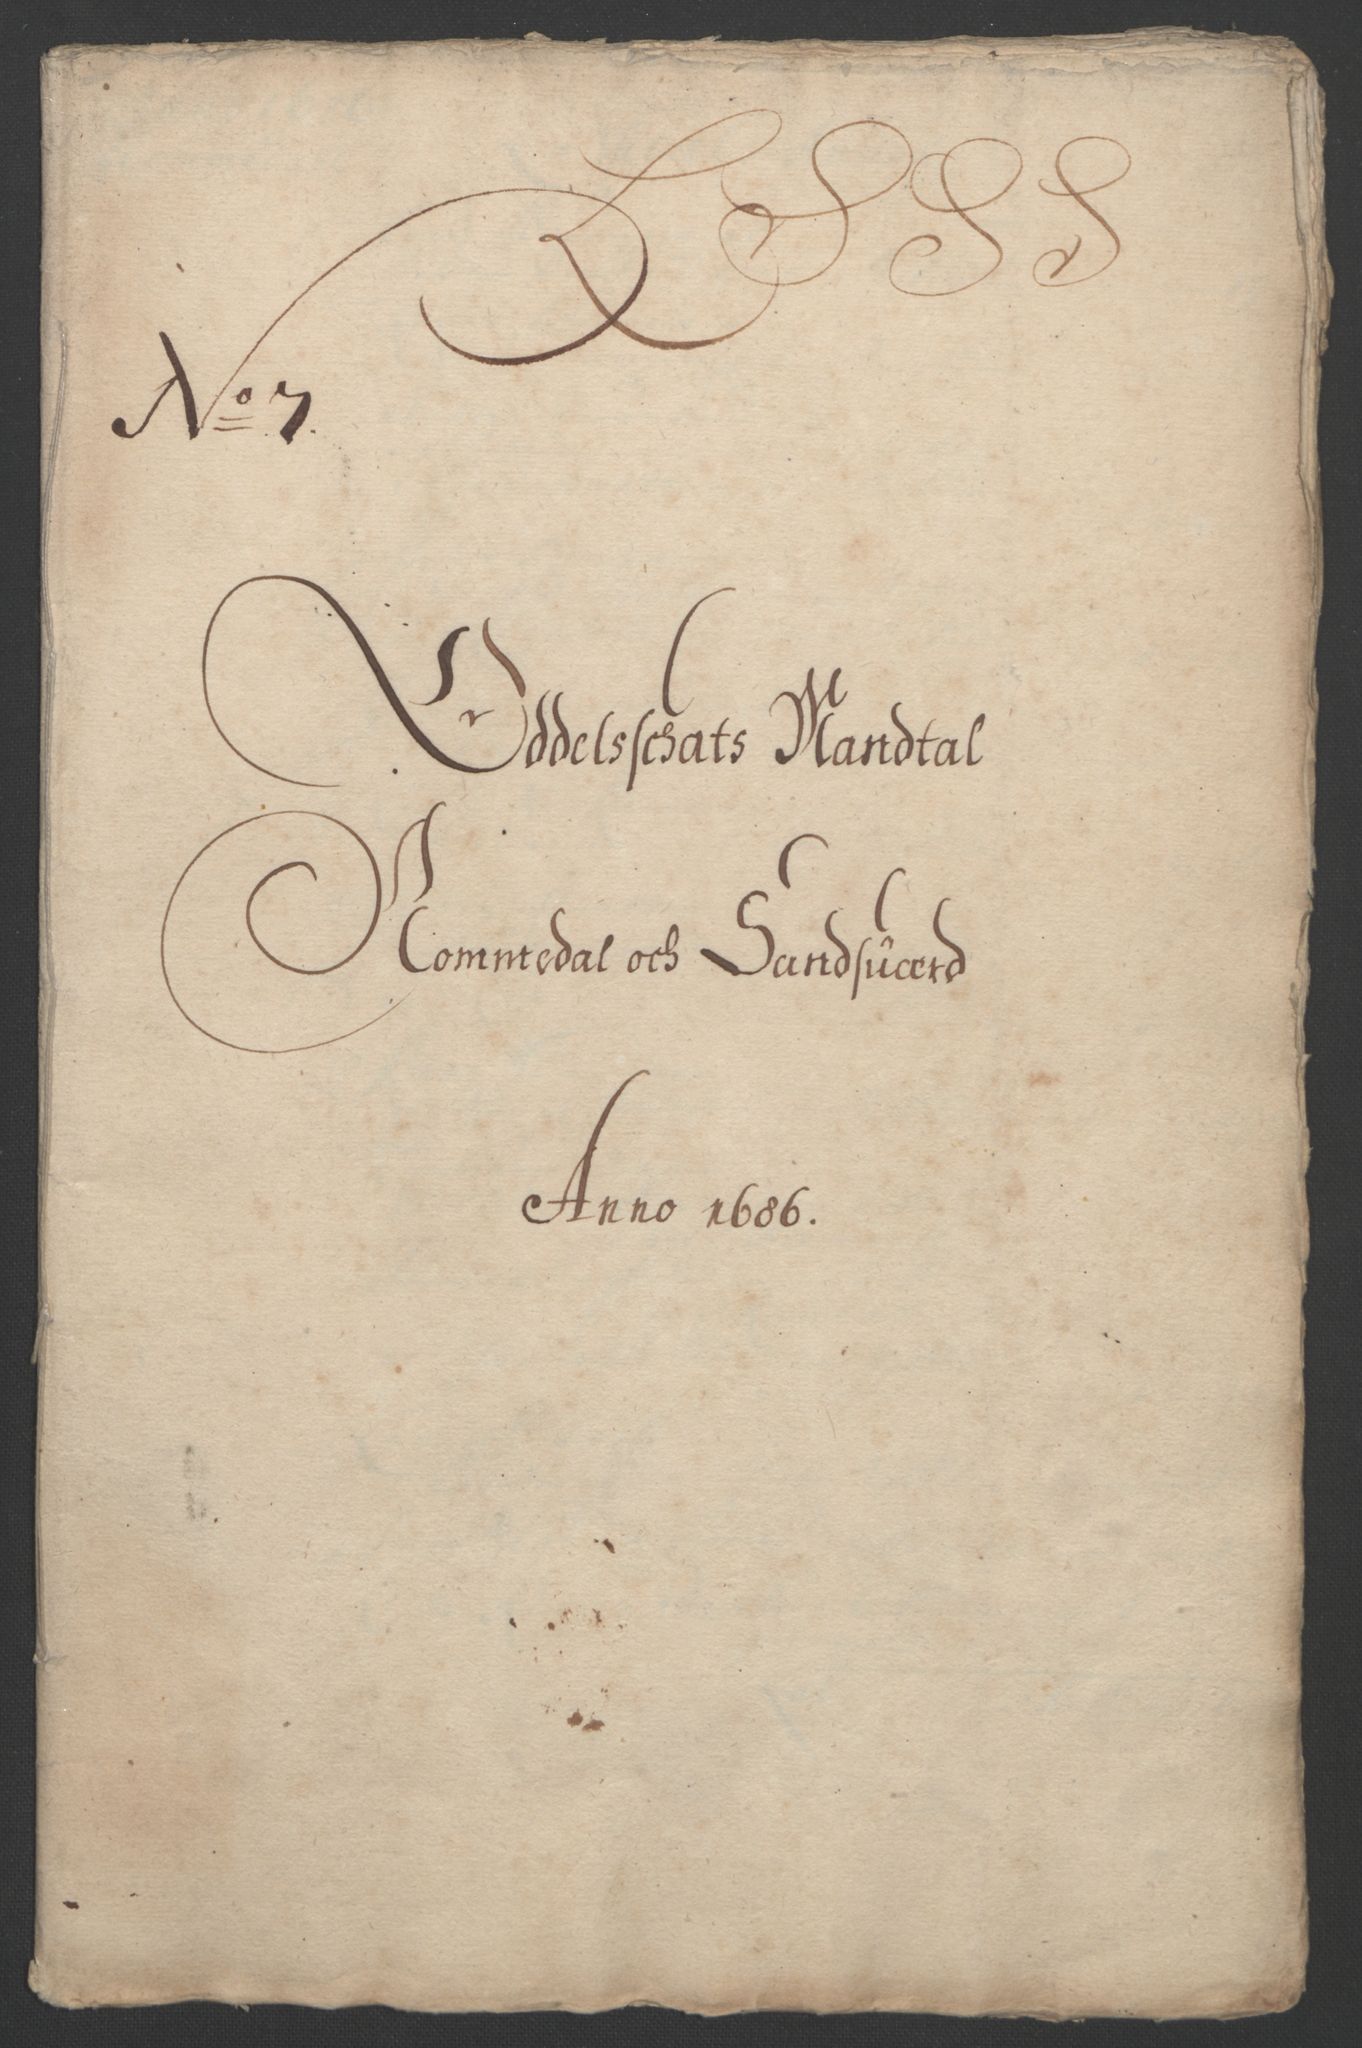 LSSS
No 7.
Oddelsschats Mandtal
Nommedal och Sandsuerd
Anno 1686.